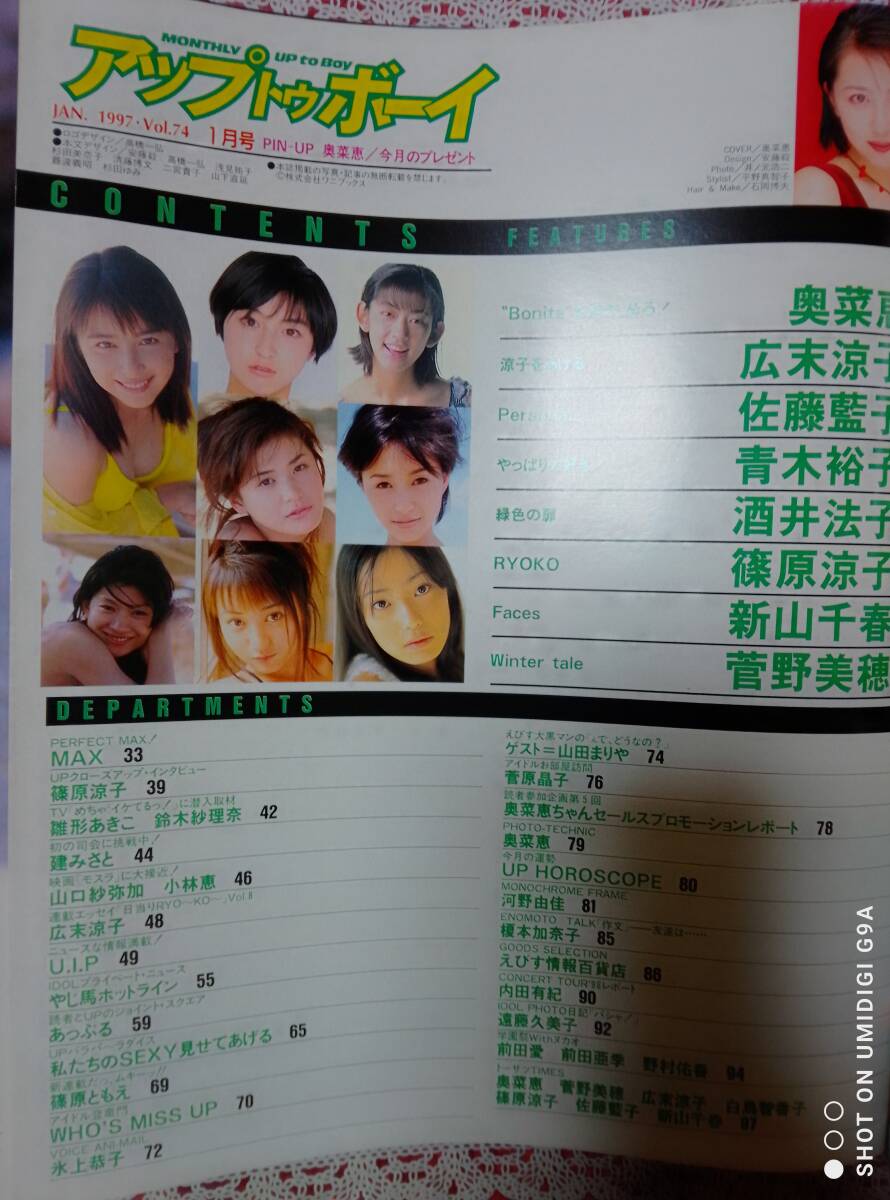 MONTHLY UP to Boy
アップトゥボーイ
JAN. 1997・Vol.74 1月号 PIN-UP 奥菜恵/今月のプレゼント
●ロゴデザイン/高橋一弘
●本文デザイン/安藤毅 高橋一弘 浅見祐子
杉田美奈子 清藤博文 二宮貴子 山下直延
藤波義昭 杉田ゆみ
●本誌掲載の写真・記事の無断転載を禁じます。
©株式会社ワニブックス
COVER/奥菜恵
Design/安藤毅
Photo/井ノ元浩二
Stylist/平野真智子
Hair & Make/石岡博夫
CONTENTS
FEATURES
"Bonita" 奥菜恵
涼子を 広末涼子
佐藤藍子
やっぱり 青木裕子
緑色の扉 酒井法子
RYOKO 篠原涼子
Faces 新山千春
Winter tale 菅野美穂
DEPARTMENTS
PERFECT MAX!
MAX 33
UPクローズアップ・インタビュー
篠原涼子 39
TV「めちゃ²イケてるっ!」に潜入取材
雛形あきこ 鈴木紗理奈 42
初の司会に挑戦中!
建みさと 44
映画「モスラ」に大接近!
山口紗弥加 小林恵 46
連載エッセイ「日当りRYO〜KO〜」Vol.8
広末涼子 48
ニュースな情報満載!
U.I.P 49
IDOLプライベート・ニュース
やじ馬ホットライン 55
読者とUPのジョイント・スクエア
あっぷる 59
UPパラパラ・ラダイス
私たちのSEXY見せてあげる 65
新連載だっ、ムキーッ!!
篠原ともえ 69
アイドル登竜門
WHO'S MISS UP 70
VOICE ANI-MAIL
氷上恭子 72
えびす大黒マンの「で、どうなの?」
ゲスト=山田まりや 74
アイドルお部屋訪問
菅原晶子 76
読者参加企画第5回
奥菜恵ちゃんセールスプロモーションレポート 78
PHOTO-TECHNIC
奥菜恵 79
今月の運勢
UP HOROSCOPE 80
MONOCHROME FRAME
河野由佳 81
ENOMOTO TALK「作文」――友達は……
榎本加奈子 85
GOODS SELECTION
えびす情報百貨店 86
CONCERT TOUR'96レポート
内田有紀 90
IDOL PHOTO日記「パシャ!」
遠藤久美子 92
学園祭Withヌカオ
前田愛 前田亜季 野村佑香 94
トーサンTIMES
奥菜恵 菅野美穂 広末涼子 白鳥智香子
篠原涼子 佐藤藍子 新山千春 97
SHOT ON UMIDIGI G9A